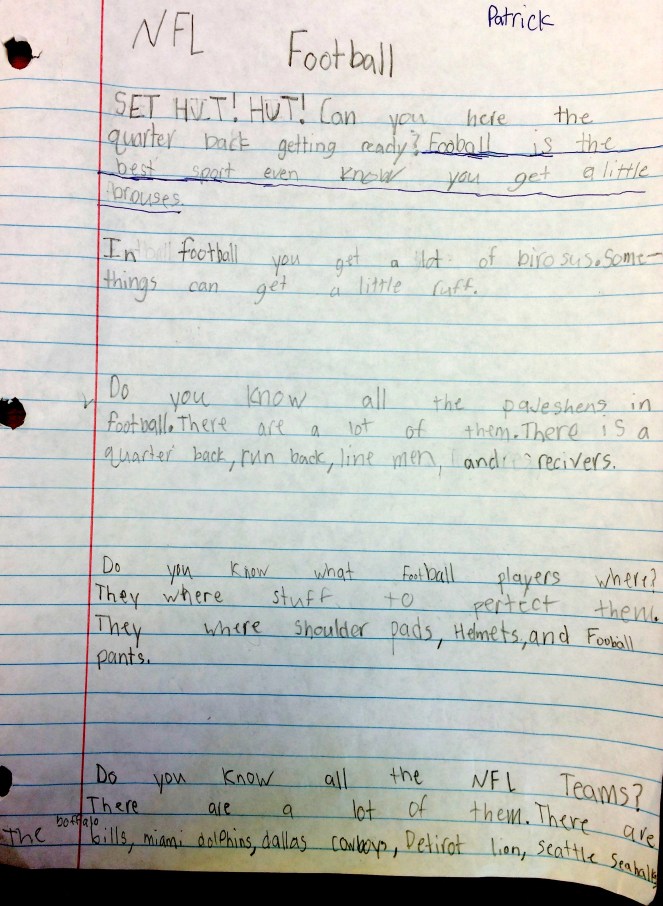 Patrick
NFL Football
SET HUT! HUT! Can you here the
quarter back getting ready? Fooball is the
best sport even know you get a little
brouses.
In football you get a lot of birosus. Some-
things can get a little ruff.
Do you know all the paveshens in
football. There are a lot of them. There is a
quarter back, run back, line men, and recivers.
Do you know what football players where?
They where stuff to pertect them.
They where shoulder pads, Helmets, and Fooball
pants.
Do you know all the NFL Teams?
There are a lot of them. There are
The boffalo bills, miami dolphins, dallas cowboys, Detirot lion, seattle seahalks